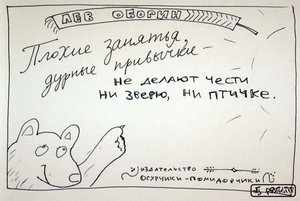 ЛЕВ ОБОРИН
Плохие занятья,
дурные привычки —
не делают чести
ни зверю, ни птичке.
издательство
огурчики-помидорчики